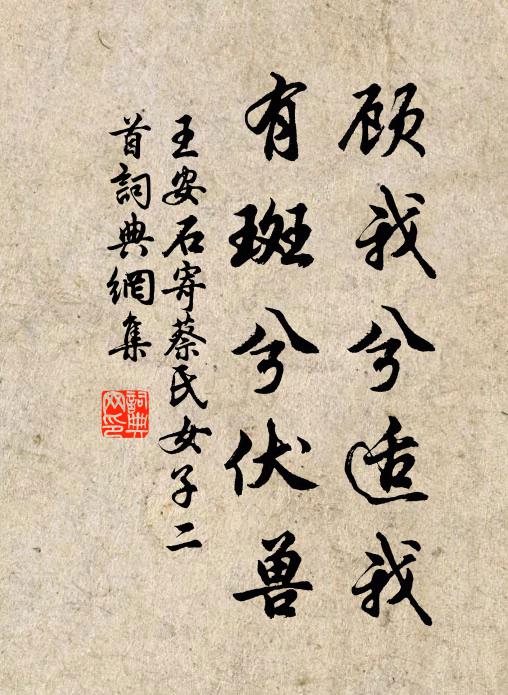 顾我兮适我
有斑兮伏兽
王安石寄蔡氏女子二
首詞典網集
詞典
网印